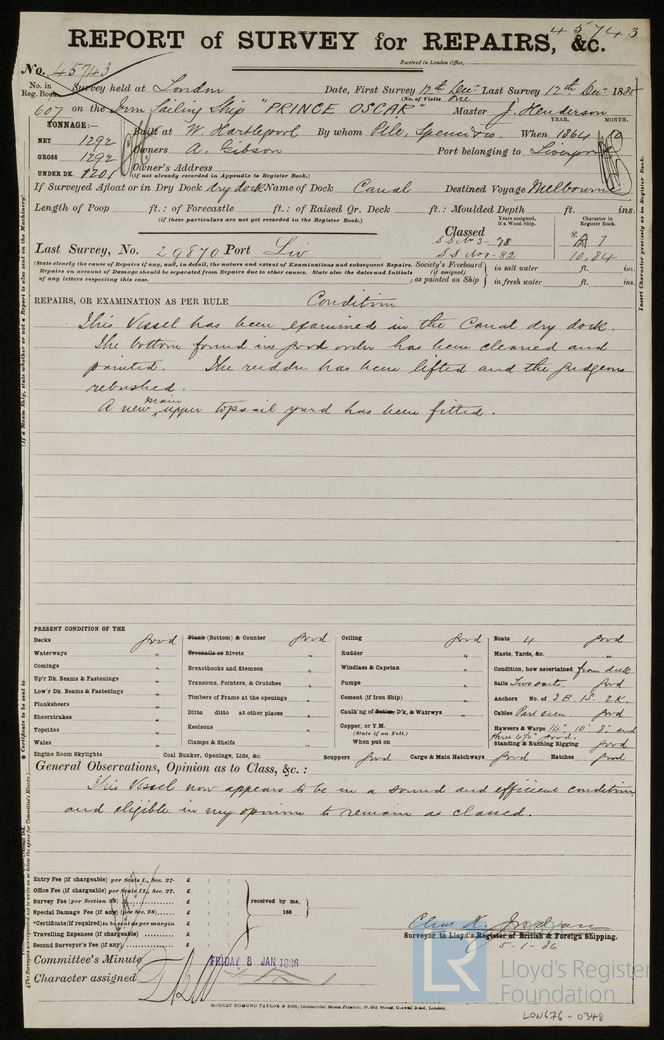 45743
REPORT of SURVEY for REPAIRS, &c.
Received in London Office,
No. 45743
No. in Reg. Book Survey held at London Date, First Survey 12th Dec. Last Survey 12th Dec. 1885
(No. of Visits One)
607 on the Iron Sailing Ship "PRINCE OSCAR" Master J. Henderson
TONNAGE:— YEAR. MONTH.
NET 1292 Built at W. Hartlepool By whom Pile, Spence & Co. When 1864
GROSS 1292 Owners A. Gibson Port belonging to Liverpool
UNDER DK. 1201 Owner's Address
(If not already recorded in Appendix to Register Book.)
If Surveyed Afloat or in Dry Dock dry dock Name of Dock Canal Destined Voyage Melbourne
Length of Poop ft.: of Forecastle ft.: of Raised Qr. Deck ft.: Moulded Depth ft. ins.
(if these particulars are not yet recorded in the Register Book.)
Years assigned, if a Wood Ship. Character in Register Book.
Classed
SS No 3-78 A 1
Last Survey, No. 29870 Port Liv SS No 1-82 10,84
(State clearly the cause of Repairs if any, and, in detail, the nature and extent of Examinations and subsequent Repairs.
Repairs on account of Damage should be separated from Repairs due to other causes. State also the dates and Initials
of any letters respecting this case.)
Society's Freeboard (if assigned) as painted on Ship in salt water ft. ins.
in fresh water ft. ins.
REPAIRS, OR EXAMINATION AS PER RULE Condition
This Vessel has been examined in the Canal dry dock.
The bottom found in good order has been cleaned and
painted. The rudder has been lifted and the gudgeons
rebushed.
A new main upper topsail yard has been fitted.
PRESENT CONDITION OF THE
Decks good Plank (Bottom) & Counter good Ceiling good Boats 4 good
Waterways " Treenails or Rivets " Rudder " Masts, Yards, &c. "
Comings " Breasthooks and Stemson " Windlass & Capstan " Condition, how ascertained from deck
Up'r Dk. Beams & Fastenings " Transoms, Pointers, & Crutches " Pumps " Sails Two suits good
Low'r Dk. Beams & Fastenings " Timbers of Frame at the openings " Cement (if Iron Ship) " Anchors No. of 3B. 1S. 2K.
Planksheers " Ditto ditto at other places " Caulk'ng of Bottom, D'k, & Watrwys " Cables Part seen good
Sheerstrakes " Keelsons " Copper, or Y.M.
Topsides " (State if on Felt.) Hawsers & Warps 14" 10" 8" and
Wales " Clamps & Shelfs " When put on three 4½" good.
Standing & Running Rigging good
Engine Room Skylights Coal Bunker, Openings, Lids, &c. Scuppers good Cargo & Main Hatchways good Hatches good
General Observations, Opinion as to Class, &c.:
This Vessel now appears to be in a sound and efficient condition
and eligible in my opinion to remain as classed.
Entry Fee (if chargeable) per Scale I., Sec. 27. £ : :
Office Fee (if chargeable) per Scale II., Sec. 27. £ : :
Survey Fee (per Section 28) £ : : received by me,
Special Damage Fee (if any) (per Sec. 28) £ : : 188
*Certificate (if required) to be sent as per margin £ : :
Travelling Expenses (if chargeable) £ : :
Second Surveyor's Fee (if any) £ : :
Surveyor to Lloyd's Register of British & Foreign Shipping.
5-1-86
Committee's Minute FRIDAY 8 JAN 1886
Character assigned
ROBERT EDMUND TAYLOR & SON, Commercial Steam Printers, 19, Old Street, Goswell Road, London.
LR Lloyd's Register
Foundation
LON676-0348